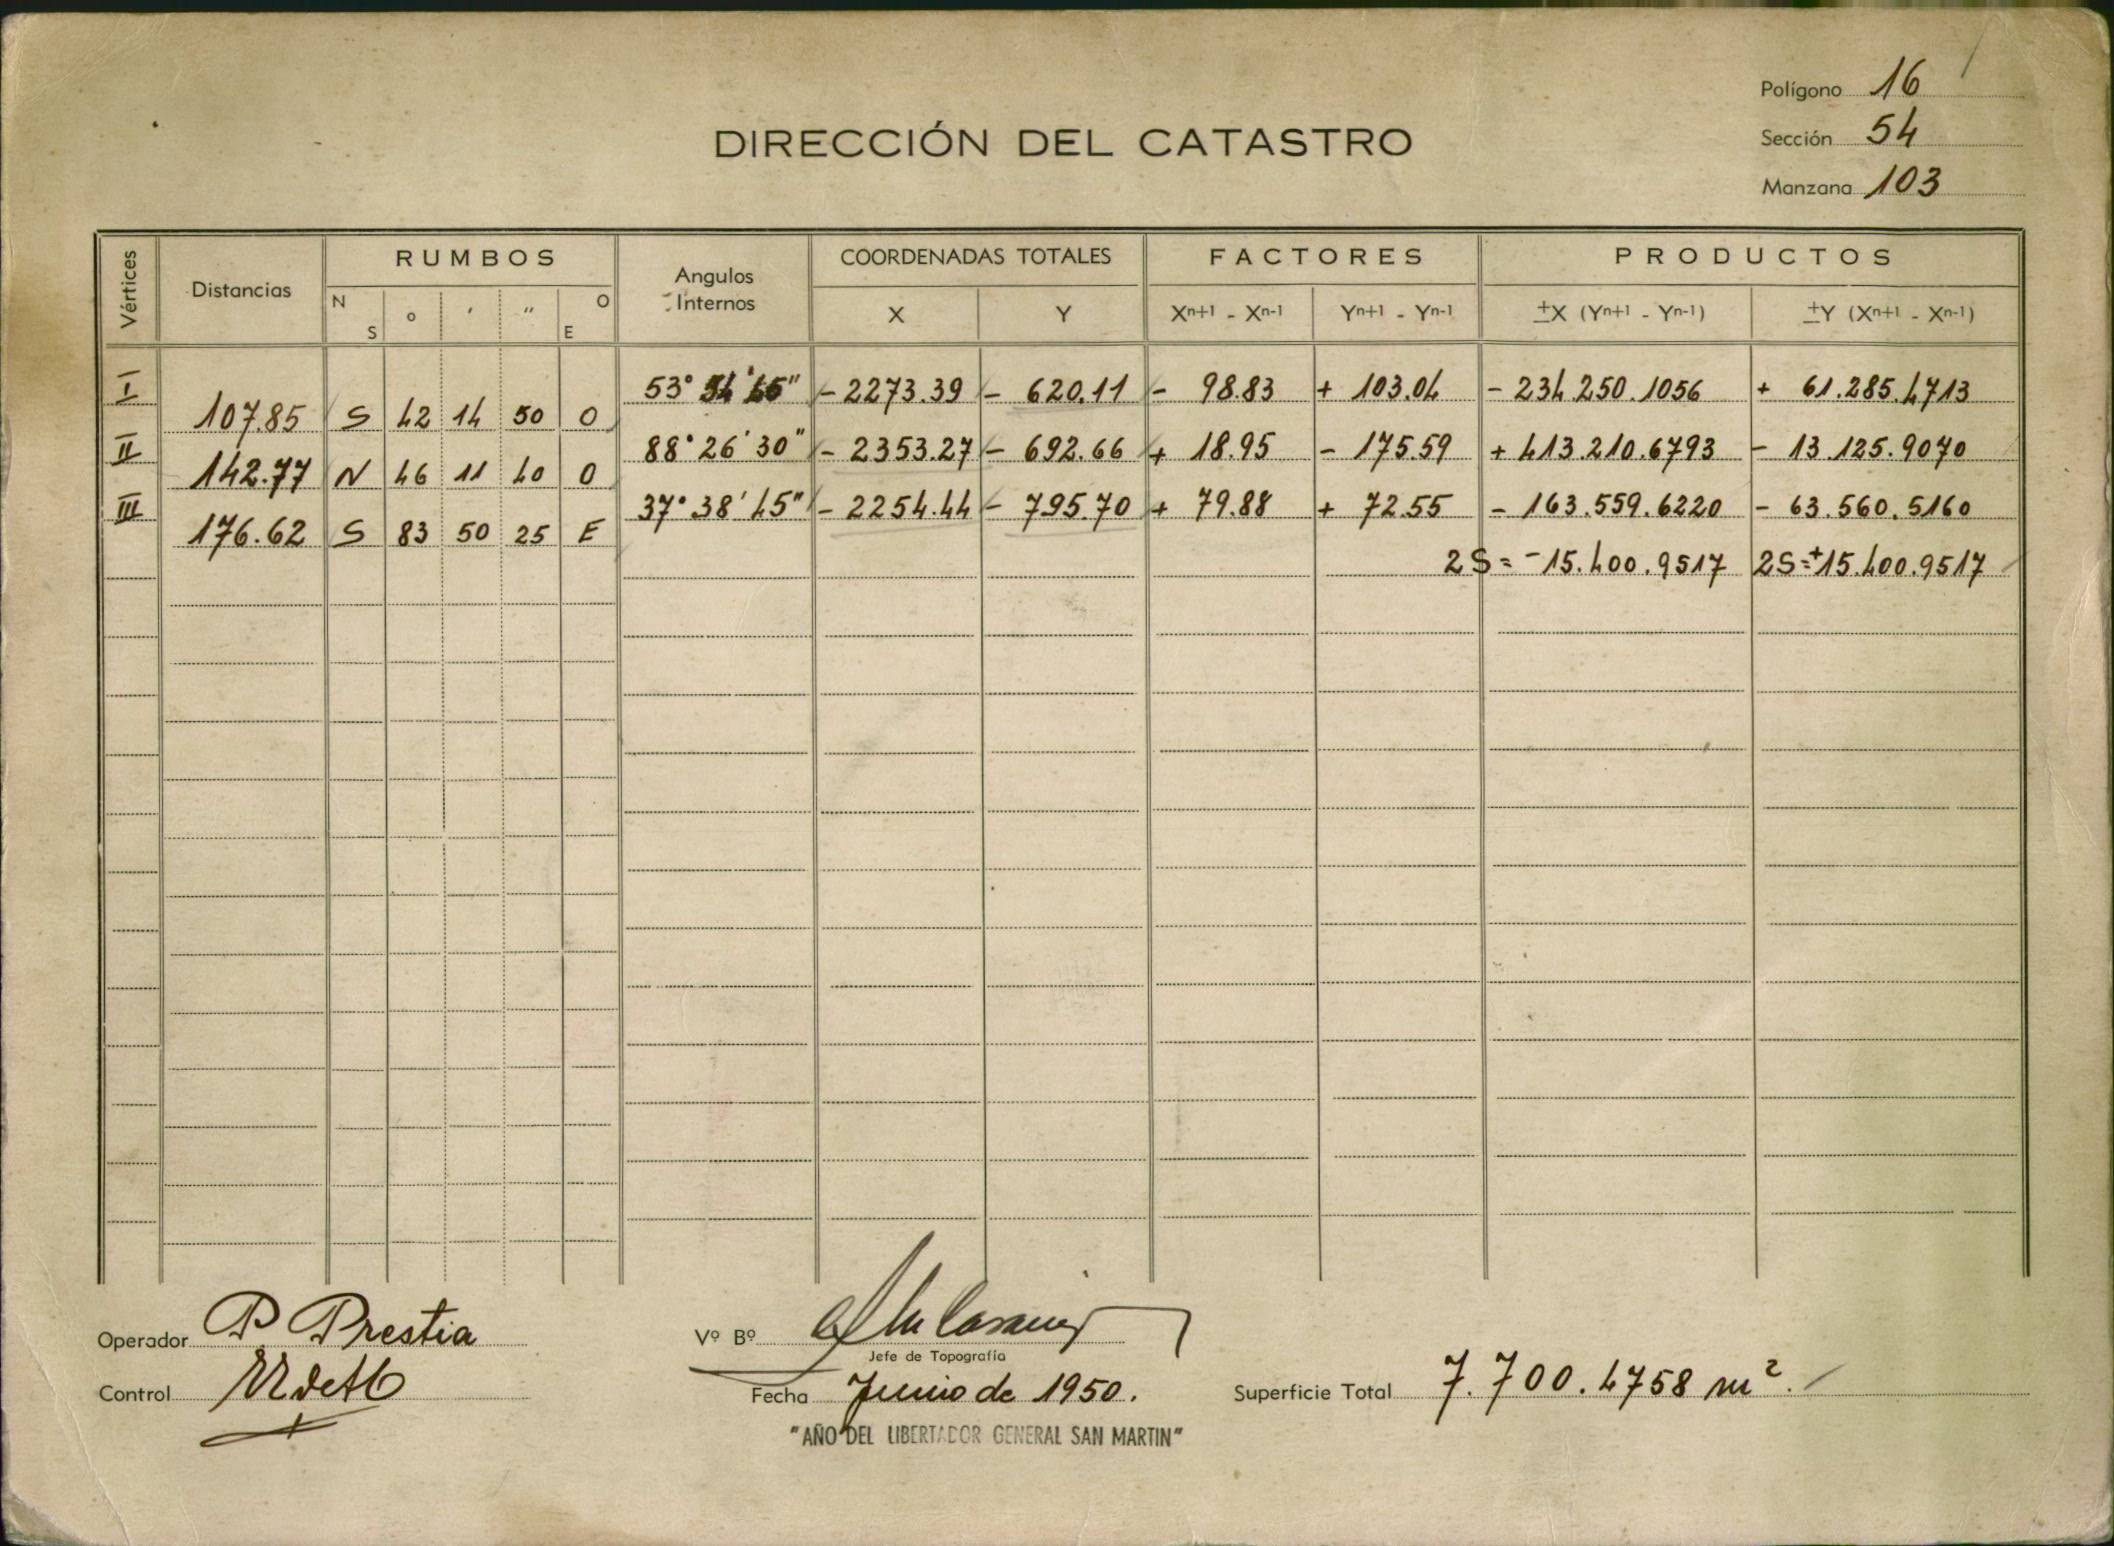 Polígono 16
DIRECCIÓN DEL CATASTRO
Sección 54
Manzana 103
Vértices Distancias RUMBOS Angulos Internos COORDENADAS TOTALES FACTORES PRODUCTOS
N S o ' " O E X Y Xn+1 - Xn-1 Yn+1 - Yn-1 ±X (Yn+1 - Yn-1) ±Y (Xn+1 - Xn-1)
I 53° 54' 45" - 2273.39 - 620.11 - 98.83 + 103.04 - 234.250.1056 + 61.285.4713
107.85 S 42 14 50 O
II 88° 26' 30" - 2353.27 - 692.66 + 18.95 - 175.59 + 413.210.6793 - 13.125.9070
142.77 N 46 11 40 O
III 37° 38' 45" - 2254.44 - 795.70 + 79.88 + 72.55 - 163.559.6220 - 63.560.5160
176.62 S 83 50 25 E
2S = -15.400.9517 2S = +15.400.9517
Operador P Prestia
Vº Bº
Jefe de Topografía
Control
Fecha Junio de 1950.
Superficie Total 7.700.4758 m².
"AÑO DEL LIBERTADOR GENERAL SAN MARTIN"